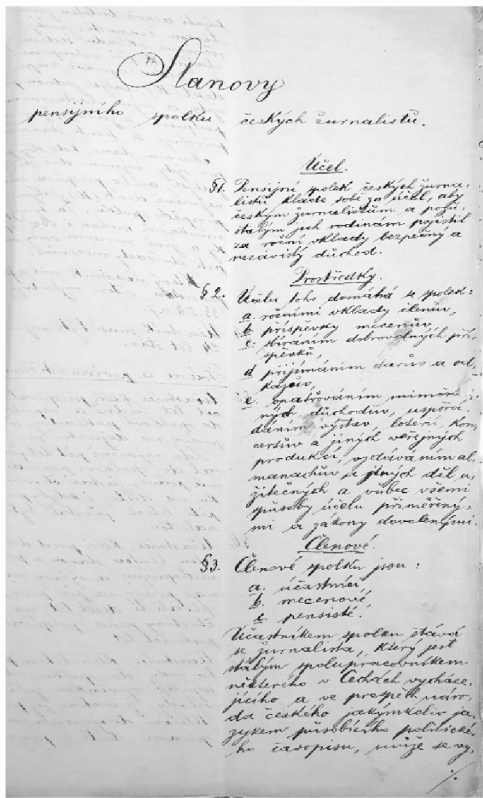 Stanovy
pensijního spolku českých žurnalistů.
Účel.
§1. Pensijní spolek českých žurna-
listů klade sobě za účel, aby
českým žurnalistům a pozů-
stalým jich rodinám pojistil
za roční vklady bezpečný a
nezávislý důchod.
Prostředky.
§2. Účelu toho domáhá se spolek:
a. ročními vklady členův,
b. příspěvky mecenův,
c. sbíráním dobrovolných pří-
spěvků,
d. přijímáním darův a od-
kazův,
e. opatřováním mimořá-
ných důchodův, uspořá-
dáním výstav, loterií, kon-
certův a jiných veřejných
produkcí, vydáváním al-
manachův a jiných děl u-
žitečných a vůbec všemi
způsoby účelu přiměřený-
mi a zákony dovolenými.
Členové.
§3. Členové spolku jsou:
a. účastníci,
b. mecenové,
c. pensisté.
Účastníkem spolku stává
se žurnalista, který jest
stálým spolupracovníkem
některého v Čechách vycháze-
jícího a ve prospěch náro-
da českého jakýmkoliv ja-
zykem působícího politické-
ho časopisu, může se vy-